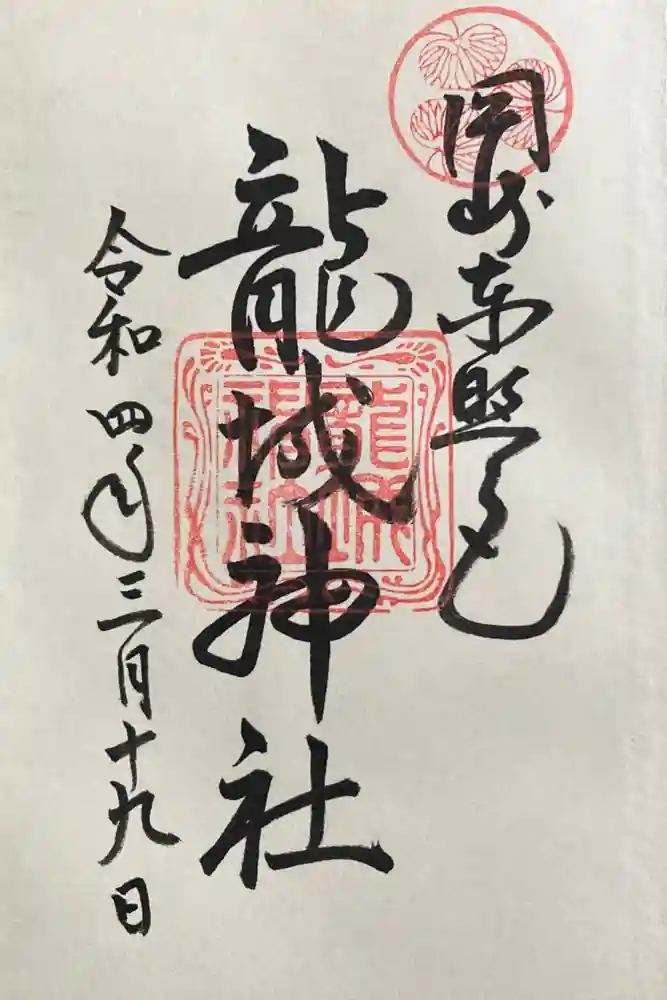 岡崎東照宮
龍城神社
令和四年三月十九日
龍城
神社